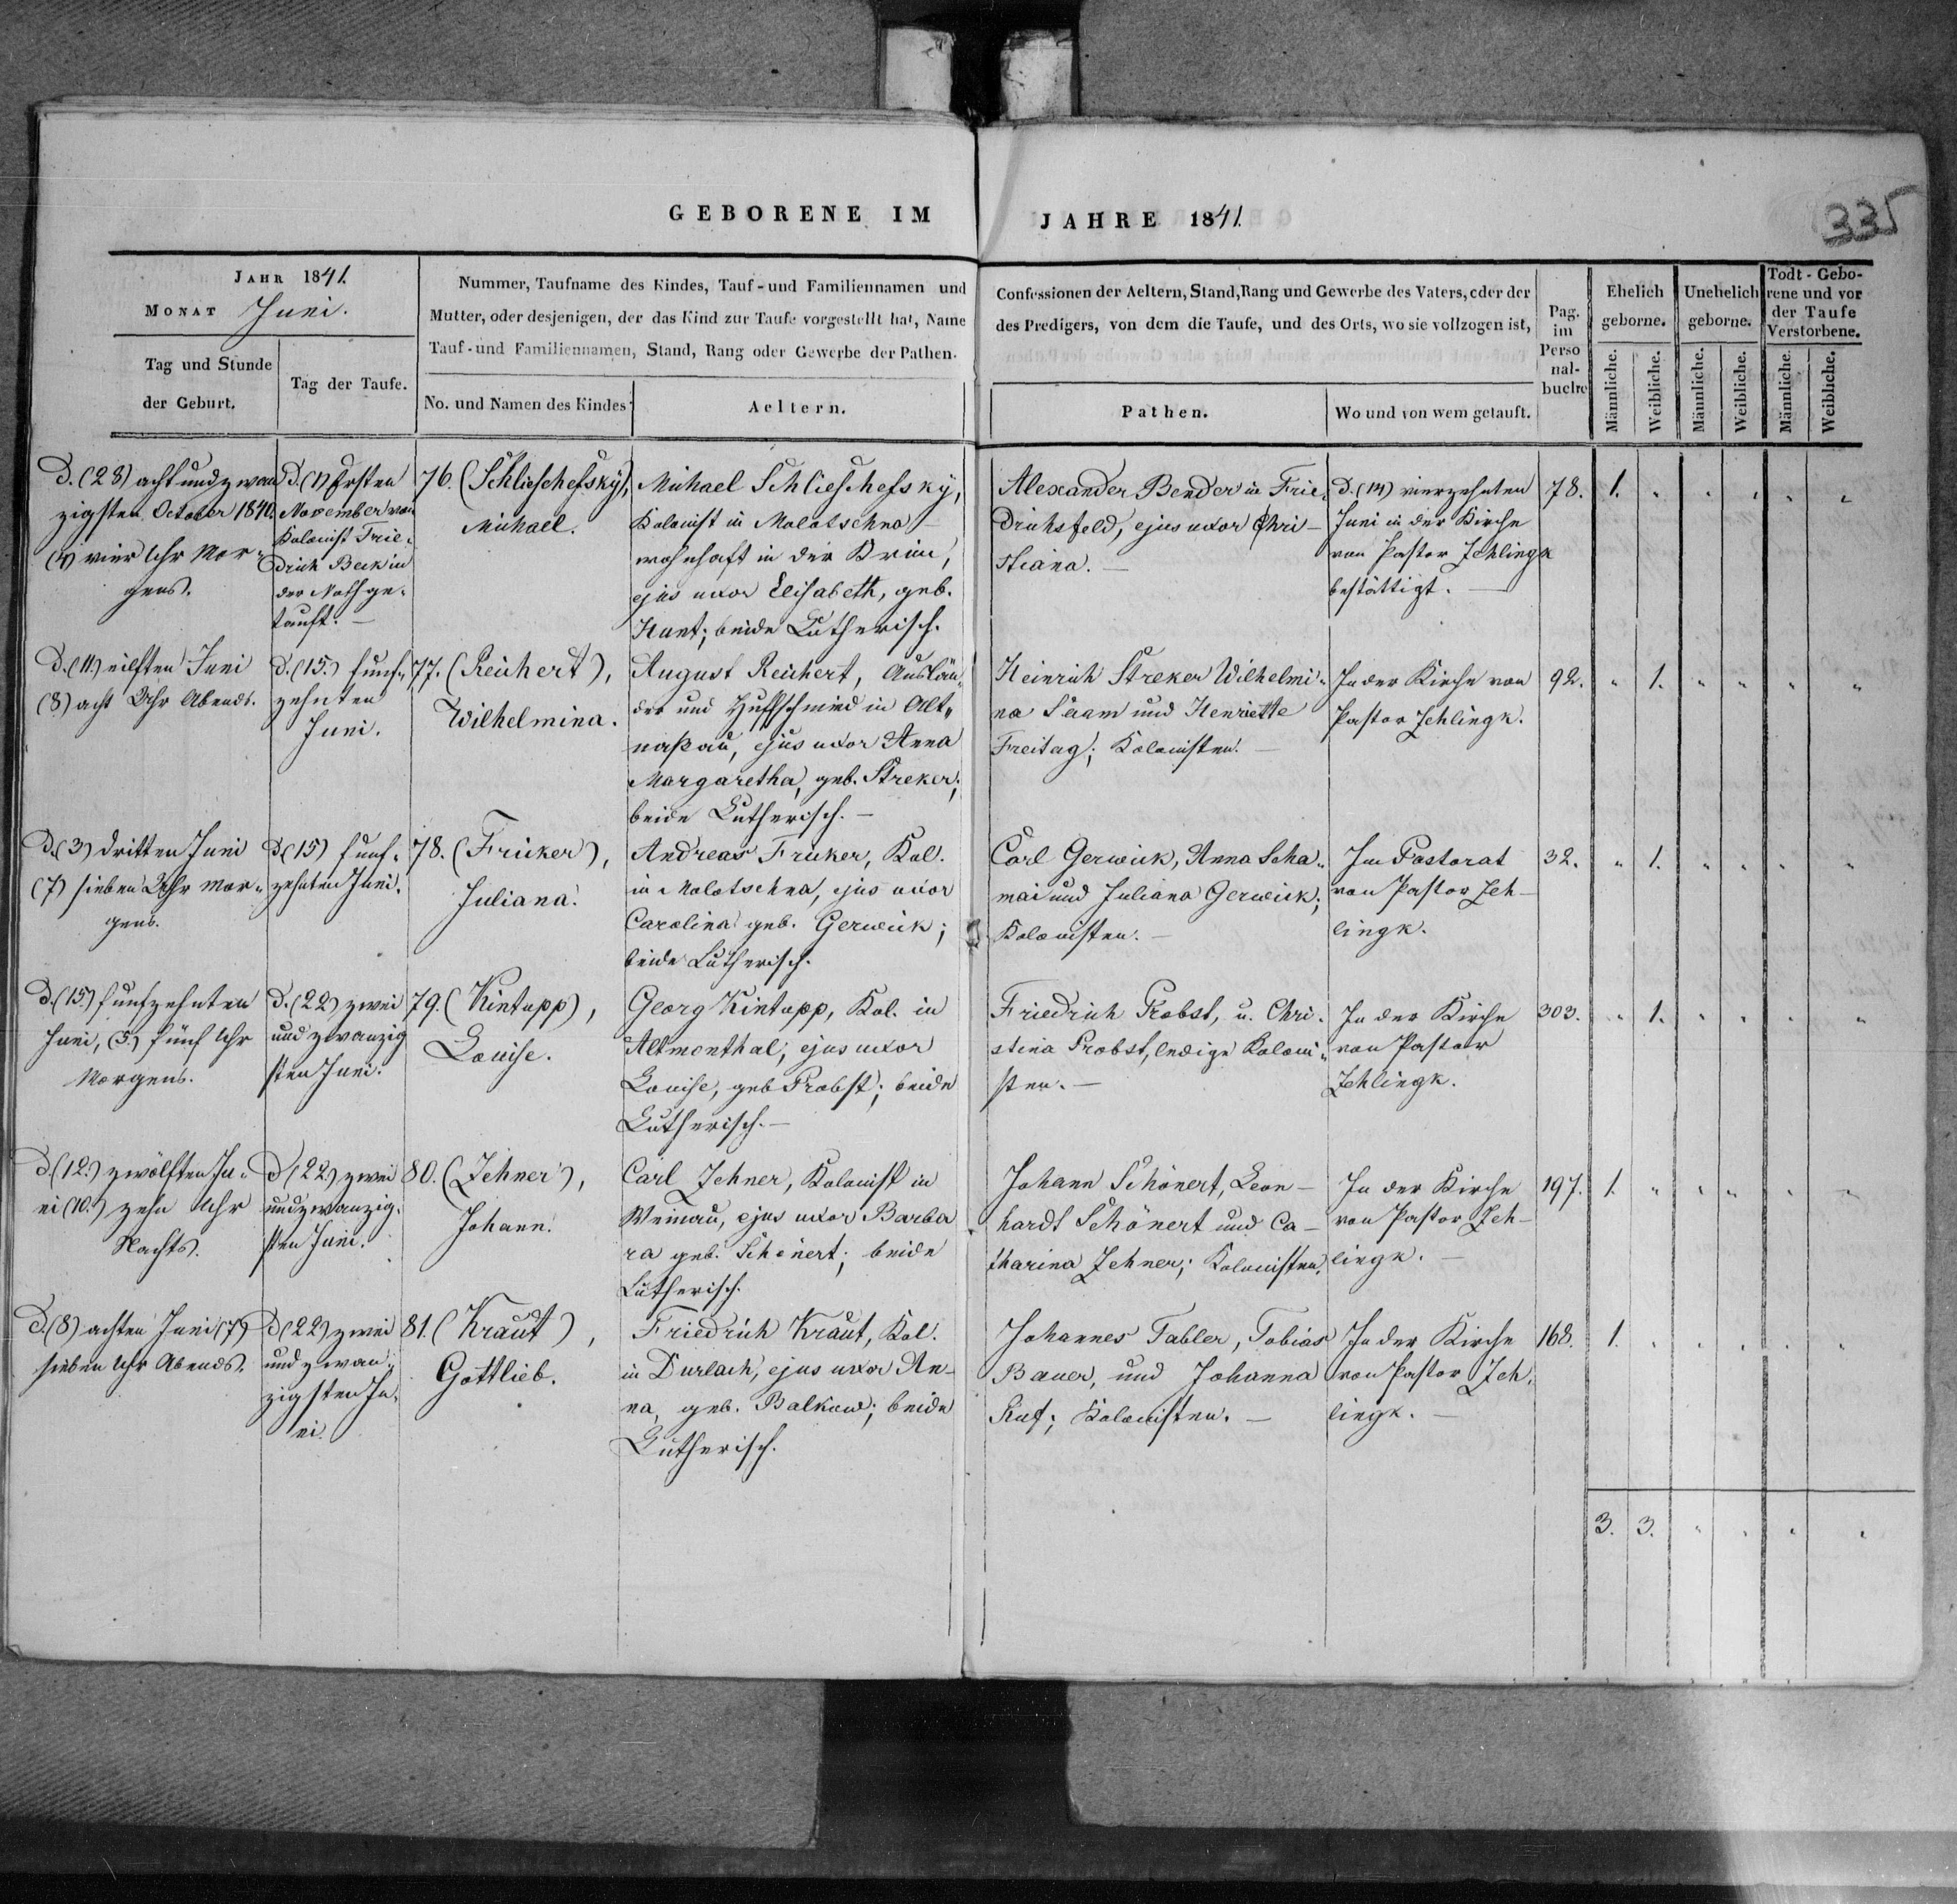 GEBORENE IM JAHRE 1841.
335
JAHR 1841.
MONAT Juni.
Tag und Stunde
der Geburt.
Tag der Taufe.
Nummer, Taufname des Kindes, Tauf- und Familiennamen und
Mutter, oder desjenigen, der das Kind zur Taufe vorgestellt hat, Name
Tauf- und Familiennamen, Stand, Rang oder Gewerbe der Pathen.
No. und Namen des Kindes
Aeltern.
Confessionen der Aeltern, Stand, Rang und Gewerbe des Vaters, oder der
des Predigers, von dem die Taufe, und des Orts, wo sie vollzogen ist,
Pathen.
Wo und von wem getauft.
Pag.
im
Perso
nal-
buche
Ehelich
geborne.
Unehelich
geborne.
Todt-Gebo-
rene und vor
der Taufe
Verstorbene.
Männliche.
Weibliche.
Männliche.
Weibliche.
Männliche.
Weibliche.
D. (28) acht und zwan
zigsten October 1840.
(4) vier Uhr Mor-
gens.
D. (1) Ersten
November von
Kolonist Frie-
drich Beck in
der Noth ge-
tauft. —
76. (Schlieschefsky),
Michael.
Michael Schlieschefsky,
Kolonist in Molotschna –
wohnhaft in der Krim,
ejus uxor Elisabeth, geb.
Hunt; beide Lutherisch.
Alexander Bender in Frie-
drichsfeld, ejus uxor Chri-
stiana. —
D. (14) vierzehnten
Juni in der Kirche
von Pastor Zehlingk
bestättigt. —
78. 1.
D. (11.) eilften Juni
(8) acht Uhr Abends.
D. (15.) funf-
zehnten
Juni.
77. (Reichert),
Wilhelmina.
August Reichert, Auslän-
der und Huffschmied in Alt-
naßau, ejus uxor Anna
Margaretha, geb. Streker;
beide Lutherisch. —
Heinrich Streker Wilhelmi-
na Saam und Henriette
Freitag; Kolonisten. —
In der Kirche von
Pastor Zehlingk.
92. " 1.
D. (3) dritten Juni
(7) sieben Uhr Mor-
gens.
D (15) funf-
zehnten Juni.
78. (Fricker),
Juliana.
Andreas Fricker, Kol.
in Molotschna, ejus uxor
Carolina geb. Gerwick;
beide Lutherisch.
Carl Gerwick, Anna Scha-
mai und Juliana Gerwick;
Kolonisten. —
Im Pastorat
von Pastor Zeh-
lingk.
32. " 1.
D. (15.) funfzehnten
Juni, (5.) fünf Uhr
Morgens.
D. (22) zwei
und zwanzig
sten Juni.
79. (Kintapp),
Louise.
Georg Kintapp, Kol. in
Altmonthal, ejus uxor
Louise, geb Probst; beide
Lutherisch. —
Friedrich Probst, u. Chri-
stina Probst, ledige Koloni-
sten. —
In der Kirche
von Pastor
Zehlingk.
303. " 1.
D (12.) zwölften Ju-
ni (10.) zehn Uhr
Nachts.
D (22.) zwei
und zwanzig-
sten Juni.
80. (Zehner),
Johann.
Carl Zehner, Kolonist in
Weinau, ejus uxor Barba
ra geb. Schönert; beide
Lutherisch.
Johann Schönert, Leon-
hardt Schönert und Ca-
tharina Zehner; Kolonisten.
In der Kirche
von Pastor Zeh-
lingk. —
197. 1.
D. (8) achten Juni (7)
sieben Uhr Abends.
D (22) zwei
und zwan-
zigsten Ju-
ni.
81. (Kraut),
Gottlieb.
Friedrich Kraut, Kol.
in Durlach, ejus uxor An-
na, geb. Balkow; beide
Lutherisch.
Johannes Tabler, Tobias
Bauer, und Johanna
Ruf; Kolonisten. —
In der Kirche
von Pastor Zeh-
lingk. —
168. 1.
3. 3.